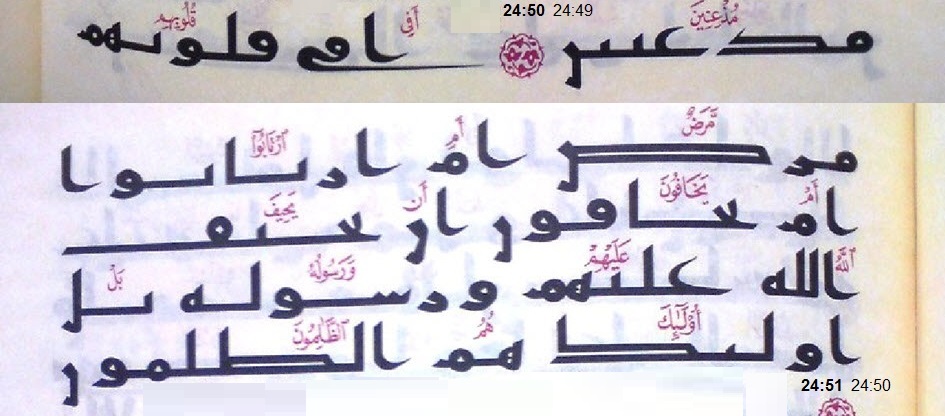 24:50 24:49
مُذْعِنِينَ أَفِي قُلُوبِهِم
مذعنين افي قلوبهم
مَّرَضٌ أَمِ ٱرْتَابُوٓا۟
مرض ام ارتابوا
أَمْ يَخَافُونَ أَن يَحِيفَ
ام يخافون ان يحيف
ٱللَّهُ عَلَيْهِمْ وَرَسُولُهُۥ بَلْ
الله عليهم ورسوله بل
أُو۟لَـٰٓئِكَ هُمُ ٱلظَّـٰلِمُونَ
اوليك هم الظلمون
24:51 24:50